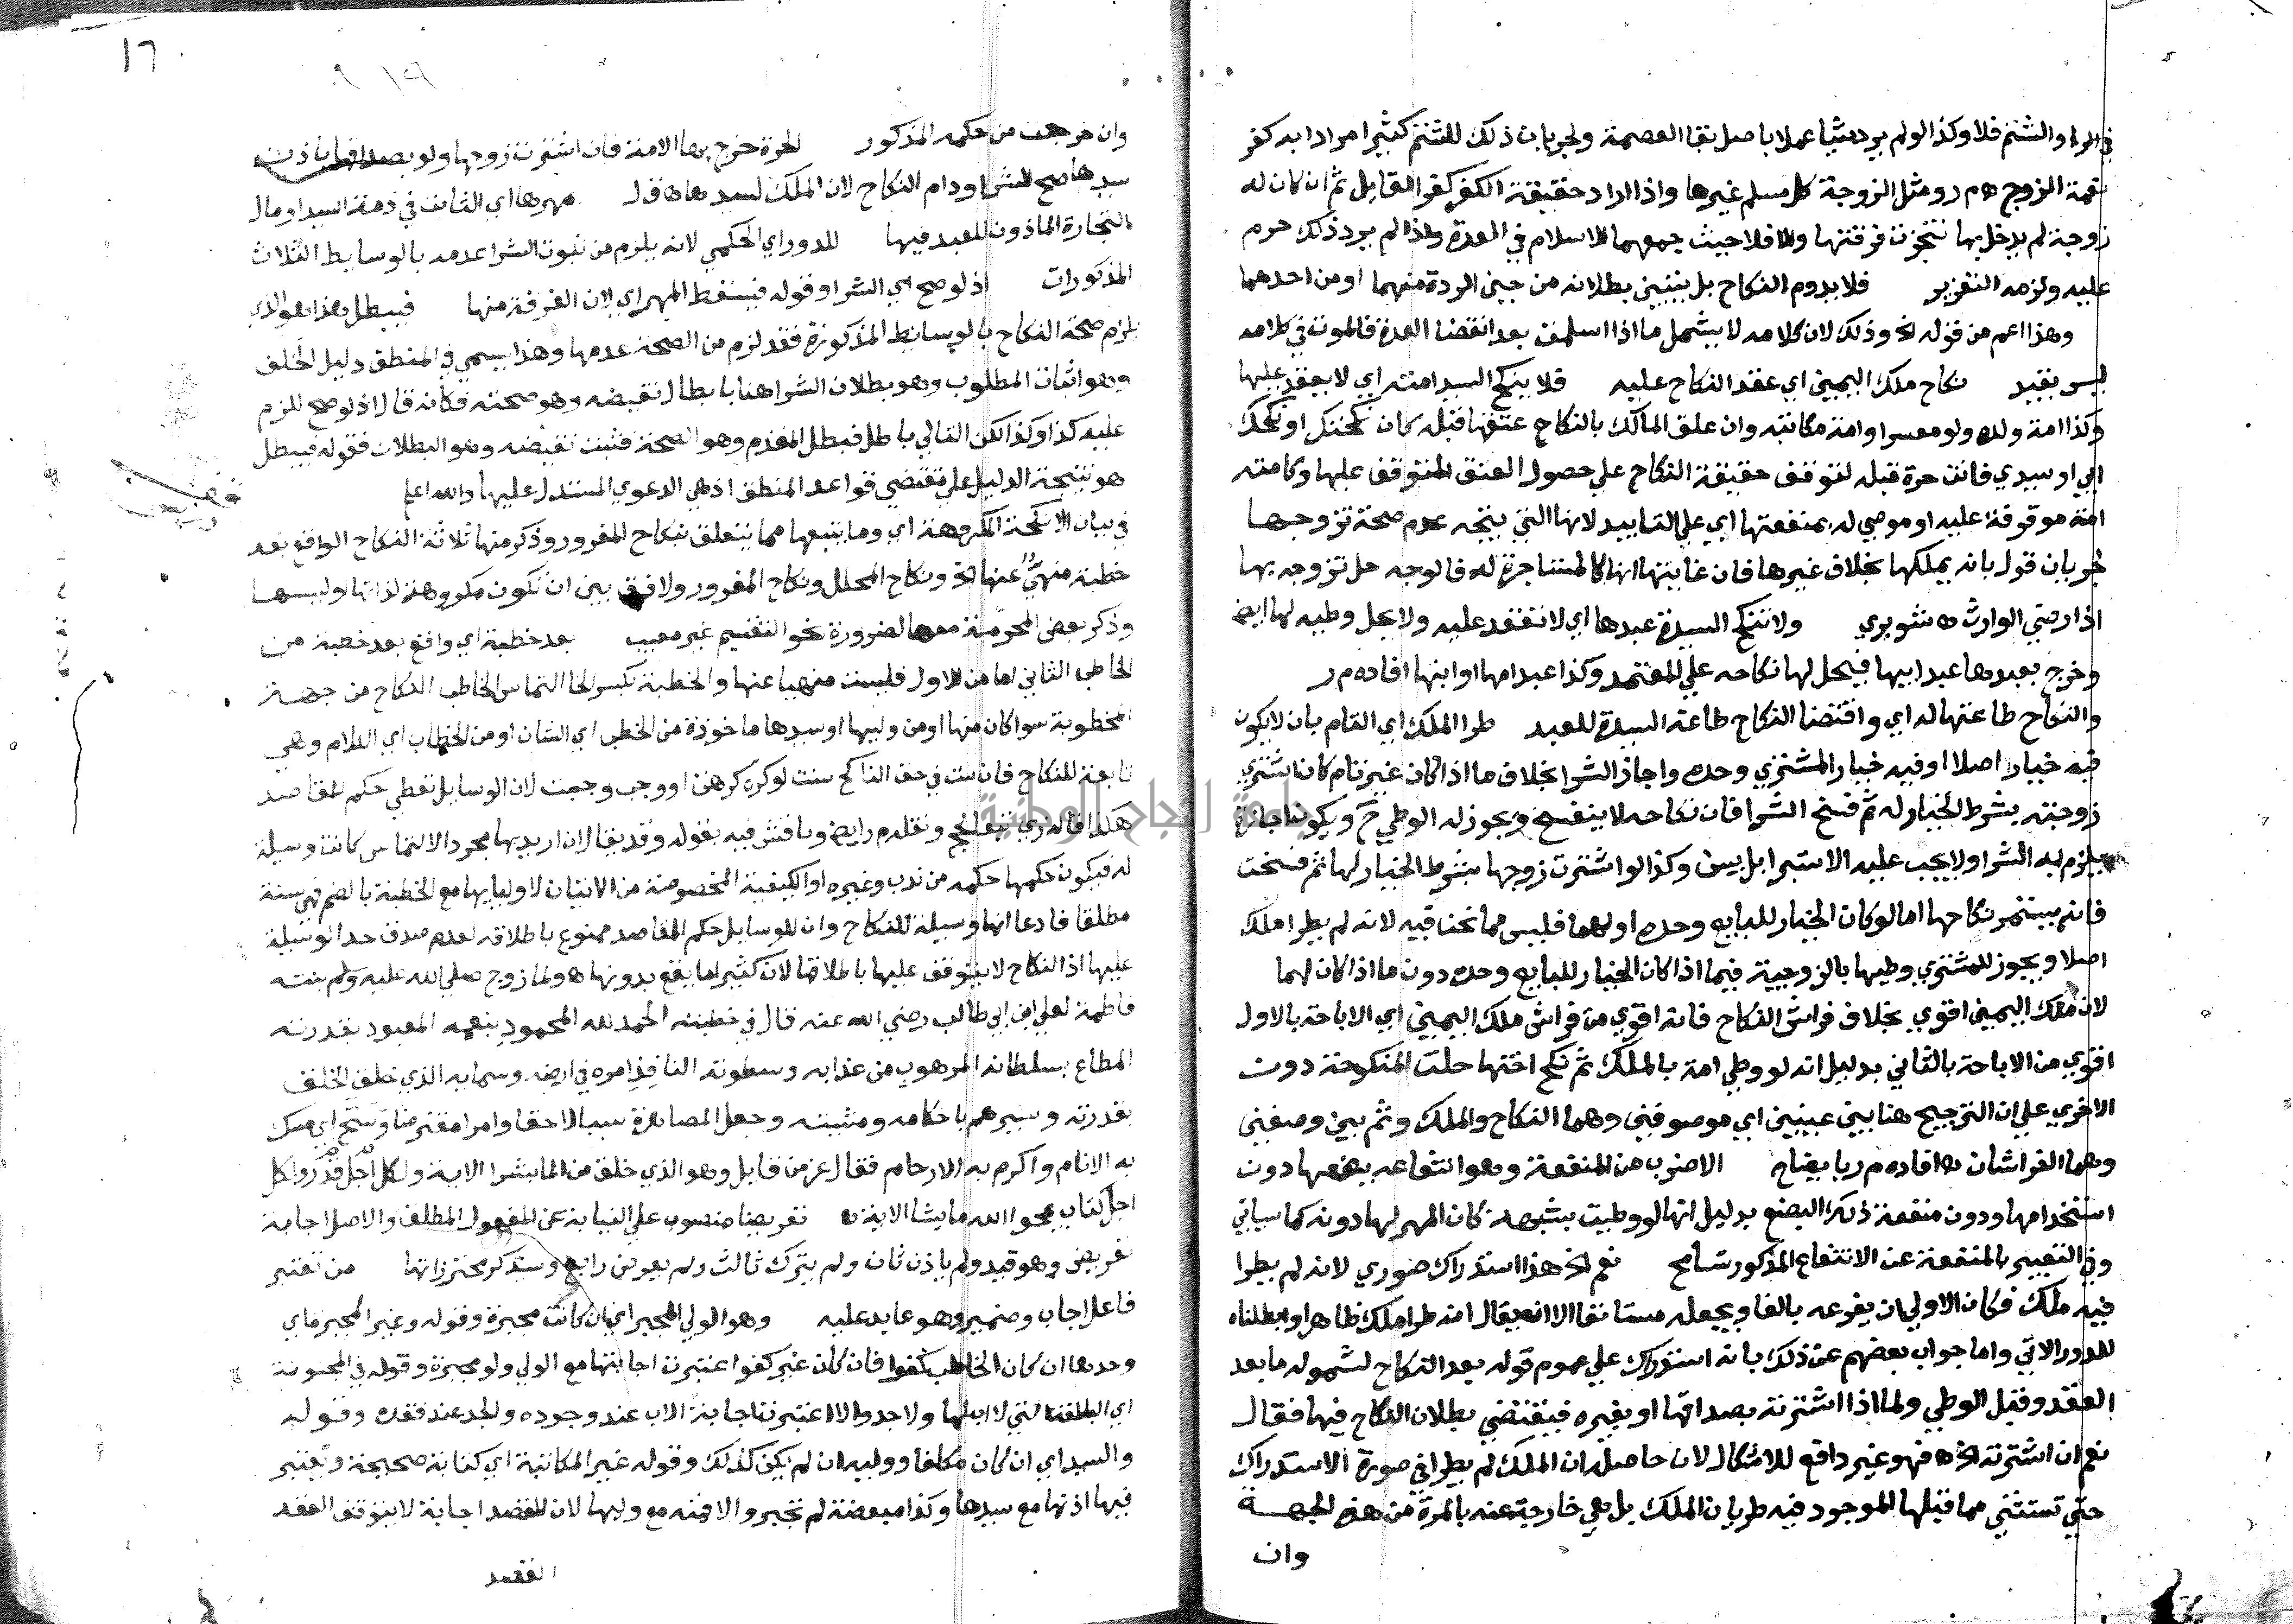 في الدعاء والشتم فلا وكذا لو لم يرد شيا عملا باصل بقا العصمة ولجريان ذلك للشتم كثيرا مرادا به كفر
نعمة الزوج ه م ر ومثل الزوجة كل مسلم غيرها واذا اراد حقيقة الكفر كفر القايل ثم ان كان له
زوجة لم يدخل بها تنجزت فرقتها والا فلا حيث جمعهما الاسلام في العدة واذا لم يرد ذلك حرم
عليه ولزمه التعزير فلا يدوم النكاح بل يتبين بطلانه من حين الردة منهما او من احدهما
وهذا اعم من قوله الخ وذلك لان كلامه لا يشمل ما اذا اسلمت بعد انقضا العدة فالموت في كلامه
ليس بقيد نكاح ملك اليمين اي عقد النكاح عليه فلا ينكح السيد امته اي لا يعقد عليها
وكذا امة ولده ولو معسرا وامة مكاتبه وان علق المالك بالنكاح عتقها قبله كان نكحتك او نكحك
ابي او سيدي فانت حرة قبله لتوقف حقيقة النكاح علي حصول العتق المتوقف عليها وكامته
امة موقوفة عليه او موصي له بمنفعتها اي علي التاييد لانها التي يتجه عدم صحة تزوجها
لجريان قول بانه يملكها بخلاف غيرها فان غايتها انها كالمستاجرة له فالوجه حل تزوجه بها
اذا رضي الوارث ه شوبري ولا تنكح السيدة عبدها اي لا تعقد عليه ولا يحل وطيه لها ايض
وخرج بعبدها عبد ابيها فيحل لها نكاحه علي المعتمد وكذا عبد امها او ابنها افاده م ر
والنكاح طاعتها له اي واقتضا النكاح طاعة السيدة للعبد طرا الملك اي التام بان لا يكون
فيه خيار اصلا او فيه خيار للمشتري وحده واجاز الشرا بخلاف ما اذا كان غير تام كان اشتري
زوجته بشرط الخيار له ثم فسخ الشرا فان نكاحه لا ينفسخ ويجوز له الوطي ح ويكون اجازة
يلزم به الشرا ولا يجب عليه الاستبرا بل يسن وكذا لو اشترت زوجها بشرط الخيار لها ثم فسخت
فانه يستمر نكاحها اما لو كان الخيار للبايع وحده او لهما فليس مما نحن فيه لانه لم يطرا ملك
اصلا ويجوز للمشتري وطيها بالزوجية فيما اذا كان الخيار للبايع وحده دون ما اذا كان لهما
لان ملك اليمين اقوي بخلاف فراش النكاح فانه اقوي من فراش ملك اليمين اي الاباحة بالاول
اقوي من الاباحة بالثاني بدليل انه لو وطي امة بالملك ثم نكح اختها حلت المنكوحة دون
الاخري علي ان الترجيح هنا بين عينين اي موصوفين وهما النكاح والملك وثم بين وصفين
وهما الفراشان ه افاده م ر بايضاح الاضرب من المنفعة وهو انتفاعه ببضعها دون
استخدامها ودون منفعة ذلك البضع بدليل انها لو وطيت بشبهة كان المهر لها دونه كما سياتي
وفي التعبير بالمنفعة عن الانتفاع المذكور تسامح نعم الخ هذا استدراك صوري لانه لم يطرا
فيه ملك فكان الاولي ان يفرعه بالفا ويجعله مستانفا الا ان يقال انه طرا ملك ظاهرا وابطلناه
للدور الاتي واما جواب بعضهم عن ذلك بانه استدراك علي عموم قوله بعد النكاح لشموله ما بعد
العقد وقبل الوطي ولما اذا اشترته بصداقها او بغيره فيقتضي بطلان النكاح فيها فقال
نعم ان اشترته الخ ه فهو غير دافع للاشكال لان حاصله ان الملك لم يطرا في صورة الاستدراك
حتي تستثني مما قبلها الموجود فيه طريان الملك بل هي خارجة عنه بالمرة من هذه الجهة
وان
١٦
وان خرجت من حكمه المذكور الحرة خرج بها الامة فان اشترت زوجها ولو بصداقها باذن
سيدها صح الشرا ودام النكاح لان الملك لسيدها ه ق ل مهرها اي الثابت في ذمة السيد او مال
التجارة الماذون للعبد فيها للدور اي الحكمي لانه يلزم من ثبوت الشرا عدمه بالوسايط الثلاث
المذكورات اذ لو صح اي الشرا وقوله فيسقط المهر اي لان الفرقة منها فيبطل هذا هو الذي
يلزم صحة النكاح بالوسايط المذكورة فقد لزم من الصحة عدمها وهذا يسمي في المنطق دليل الخلف
وهو اثبات المطلوب وهو بطلان الشرا هنا بابطال نقيضه وهو صحته فكانه قال اذ لو صح للزم
عليه كذا وكذا لكن التالي باطل فبطل المقدم وهو الصحة فثبت نقيضه وهو البطلان فقوله فيبطل
هو نتيجة الدليل علي مقتضي قواعد المنطق اذ هي الدعوي المستدل عليها والله اعلم
في بيان الانكحة المكروهة اي وما يتبعها مما يتعلق بنكاح المغرور وذكر منها ثلاثة النكاح الواقع بعد
خطبة منهي عنها الخ ونكاح المحلل ونكاح المغرور ولا فرق بين ان تكون مكروهة لذاتها او ليسها
وذكر بعض المحرمة معها لضرورة نحو التقسيم غير معيب بعد خطبة اي واقع بعد خطبة من
الخاطب الثاني اما من الاول فليست منهيا عنها والخطبة بكسر الخا التماس الخاطب النكاح من جهة
المخطوبة سوا كان منها او من وليها او سيدها ماخوذة من الخطب اي الشان او من الخطاب اي الكلام وهي
تابعة للنكاح فان سن في حق الناكح سنت او كره كرهت او وجب وجبت لان الوسايل تعطي حكم المقاصد
هكذا قاله زي تبعا لحج ونقله م ر ايض وناقش فيه بقوله وقد يقال ان اريد بها مجرد الالتماس كانت وسيلة
له فيكون حكمها حكمه من ندب وغيره او الكيفية المخصوصة من الاتيان لاوليايها مع الخطبة بالضم فهي سنة
مطلقا فادعا انها وسيلة للنكاح وان للوسايل حكم المقاصد ممنوع باطلاقه لعدم صدق حد الوسيلة
عليها اذ النكاح لا يتوقف عليها باطلاقها لان كثيرا ما يقع بدونها ه ولما زوج صلي الله عليه وسلم بنته
فاطمة لعلي ابن ابي طالب رضي الله عنه قال في خطبته الحمد لله المحمود بنعمه المعبود بقدرته
المطاع بسلطانه المرهوب من عذابه وسطوته النافذ امره في ارضه وسمايه الذي خلق الخلق
بقدرته وسيرهم باحكامه ومشيته وجعل المصاهرة سببا لاحقا وامرا مفترضا وشج اي شبك
به الانام واكرم به الارحام فقال عز من قايل وهو الذي خلق من الما بشرا الاية ولكل اجل قدر ولكل
اجل كتاب يمحوا الله ما يشا الاية ه تعريضا منصوب علي النيابة عن المفعول المطلق والاصل اجابة
تعريض وهو قيد ولم ياذن ثان ولم يترك ثالث ولم يعرض رابع وستذكر محترزاتها من تعتبر
فاعل اجاب وضمير وهو عايد عليه وهو الولي المجبر اي ان كانت مجبرة وقوله وغير المجبر ماي
وحدها ان كان الخاطب كفوا فان كان غير كفوا اعتبرت اجابتها مع الولي ولو مجبرة وقوله في المجنونة
اي البالغة التي لا اب لها ولا جد والا اعتبرت اجابة الاب عند وجوده والجد عند فقده وقوله
والسيد اي ان كان مكلفا ووليه ان لم يكن كذلك وقوله غير المكاتبة اي كتابة صحيحة وتعتبر
فيها اذنها مع سيدها وكذا مبعضة لم تجبر والا فمنه مع وليها لان القصد اجابة لا يتوقف العقد
العقد
جامعة النجاح الوطنية